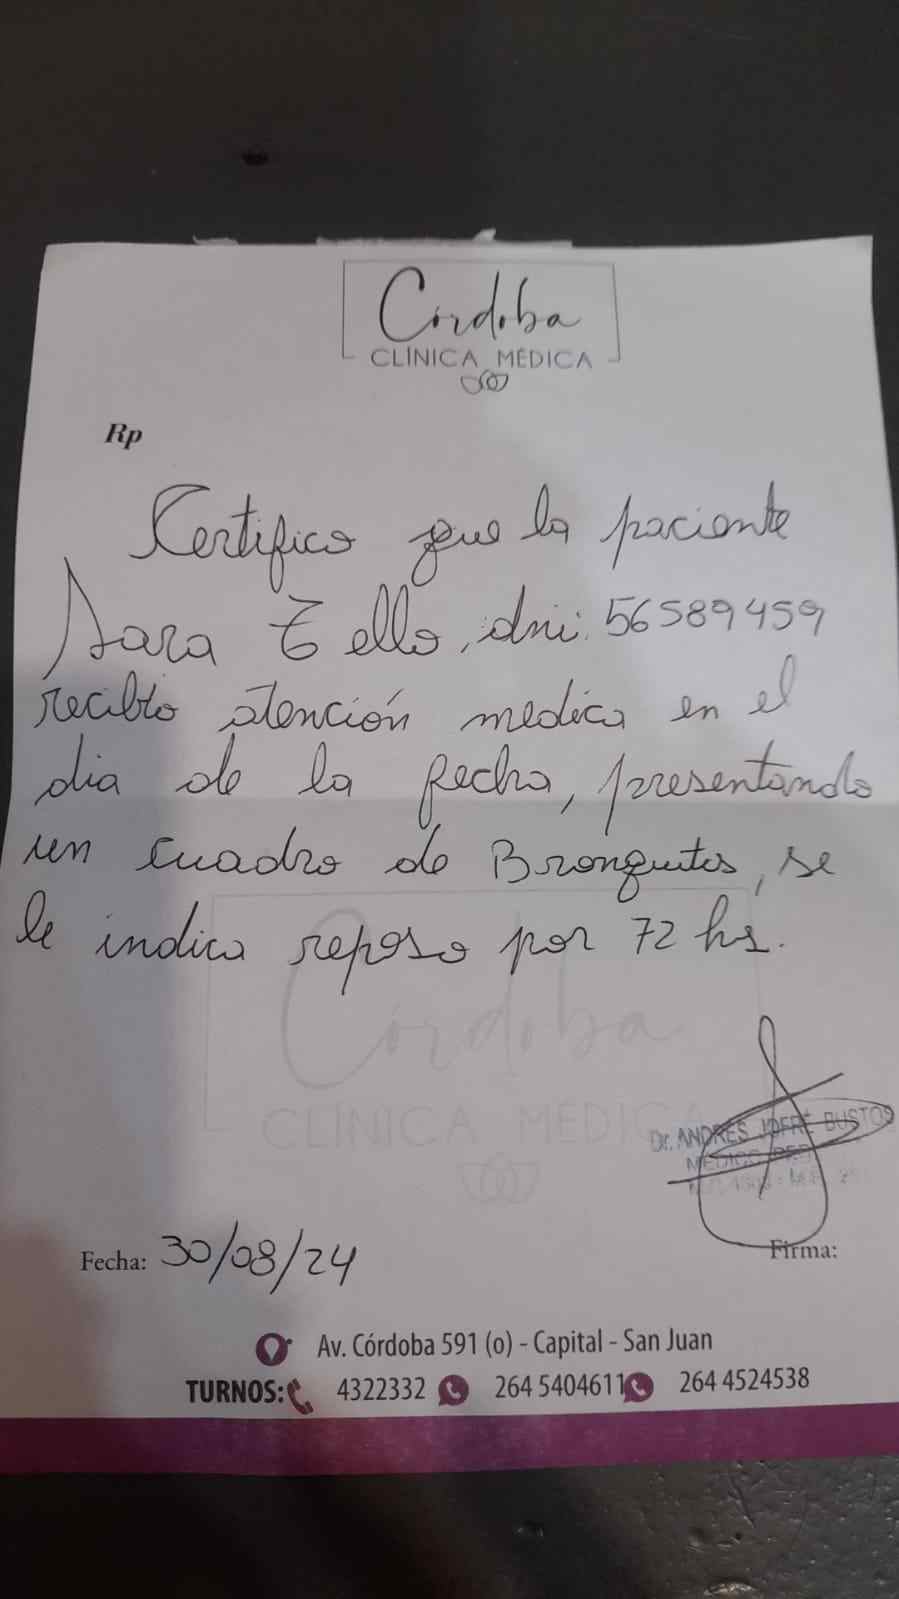 Córdoba
CLÍNICA MÉDICA
Rp
Certifico que la paciente
Sara Tello, dni: 56589459
recibio atención medica en el
dia de la fecha, presentando
un cuadro de Bronquitis, se
le indica reposo por 72 hs.
Córdoba
CLÍNICA MÉDICA
Dr. ANDRES JOFRÉ BUSTOS
MÉDICO
Fecha: 30/08/24
Firma:
Av. Córdoba 591 (o) - Capital - San Juan
TURNOS: 4322332 264 5404611 264 4524538